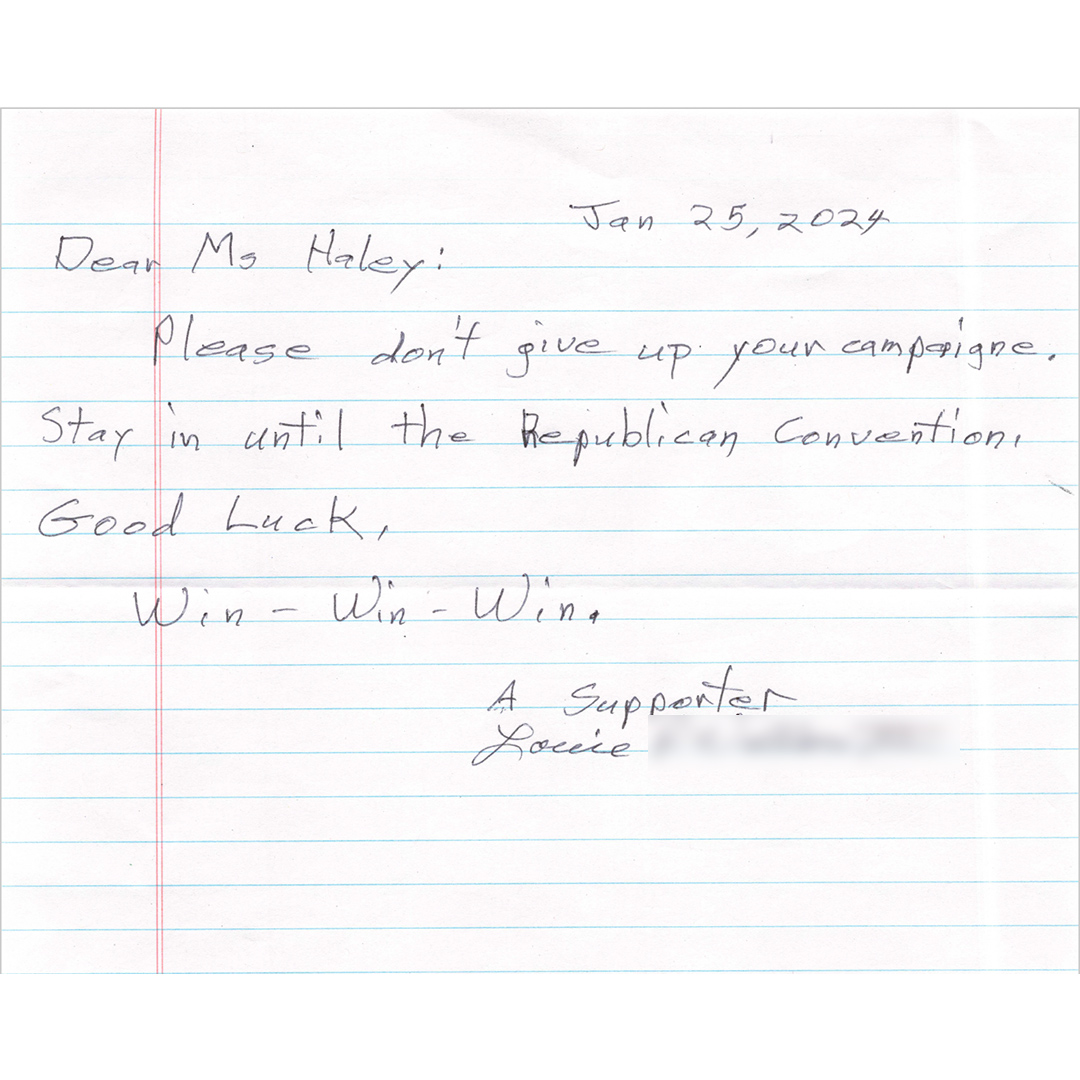 Jan 25, 2024
Dear Ms Haley:
Please don't give up your campaigne.
Stay in until the Republican Convention.
Good Luck,
Win - Win - Win.
A Supporter
Louie